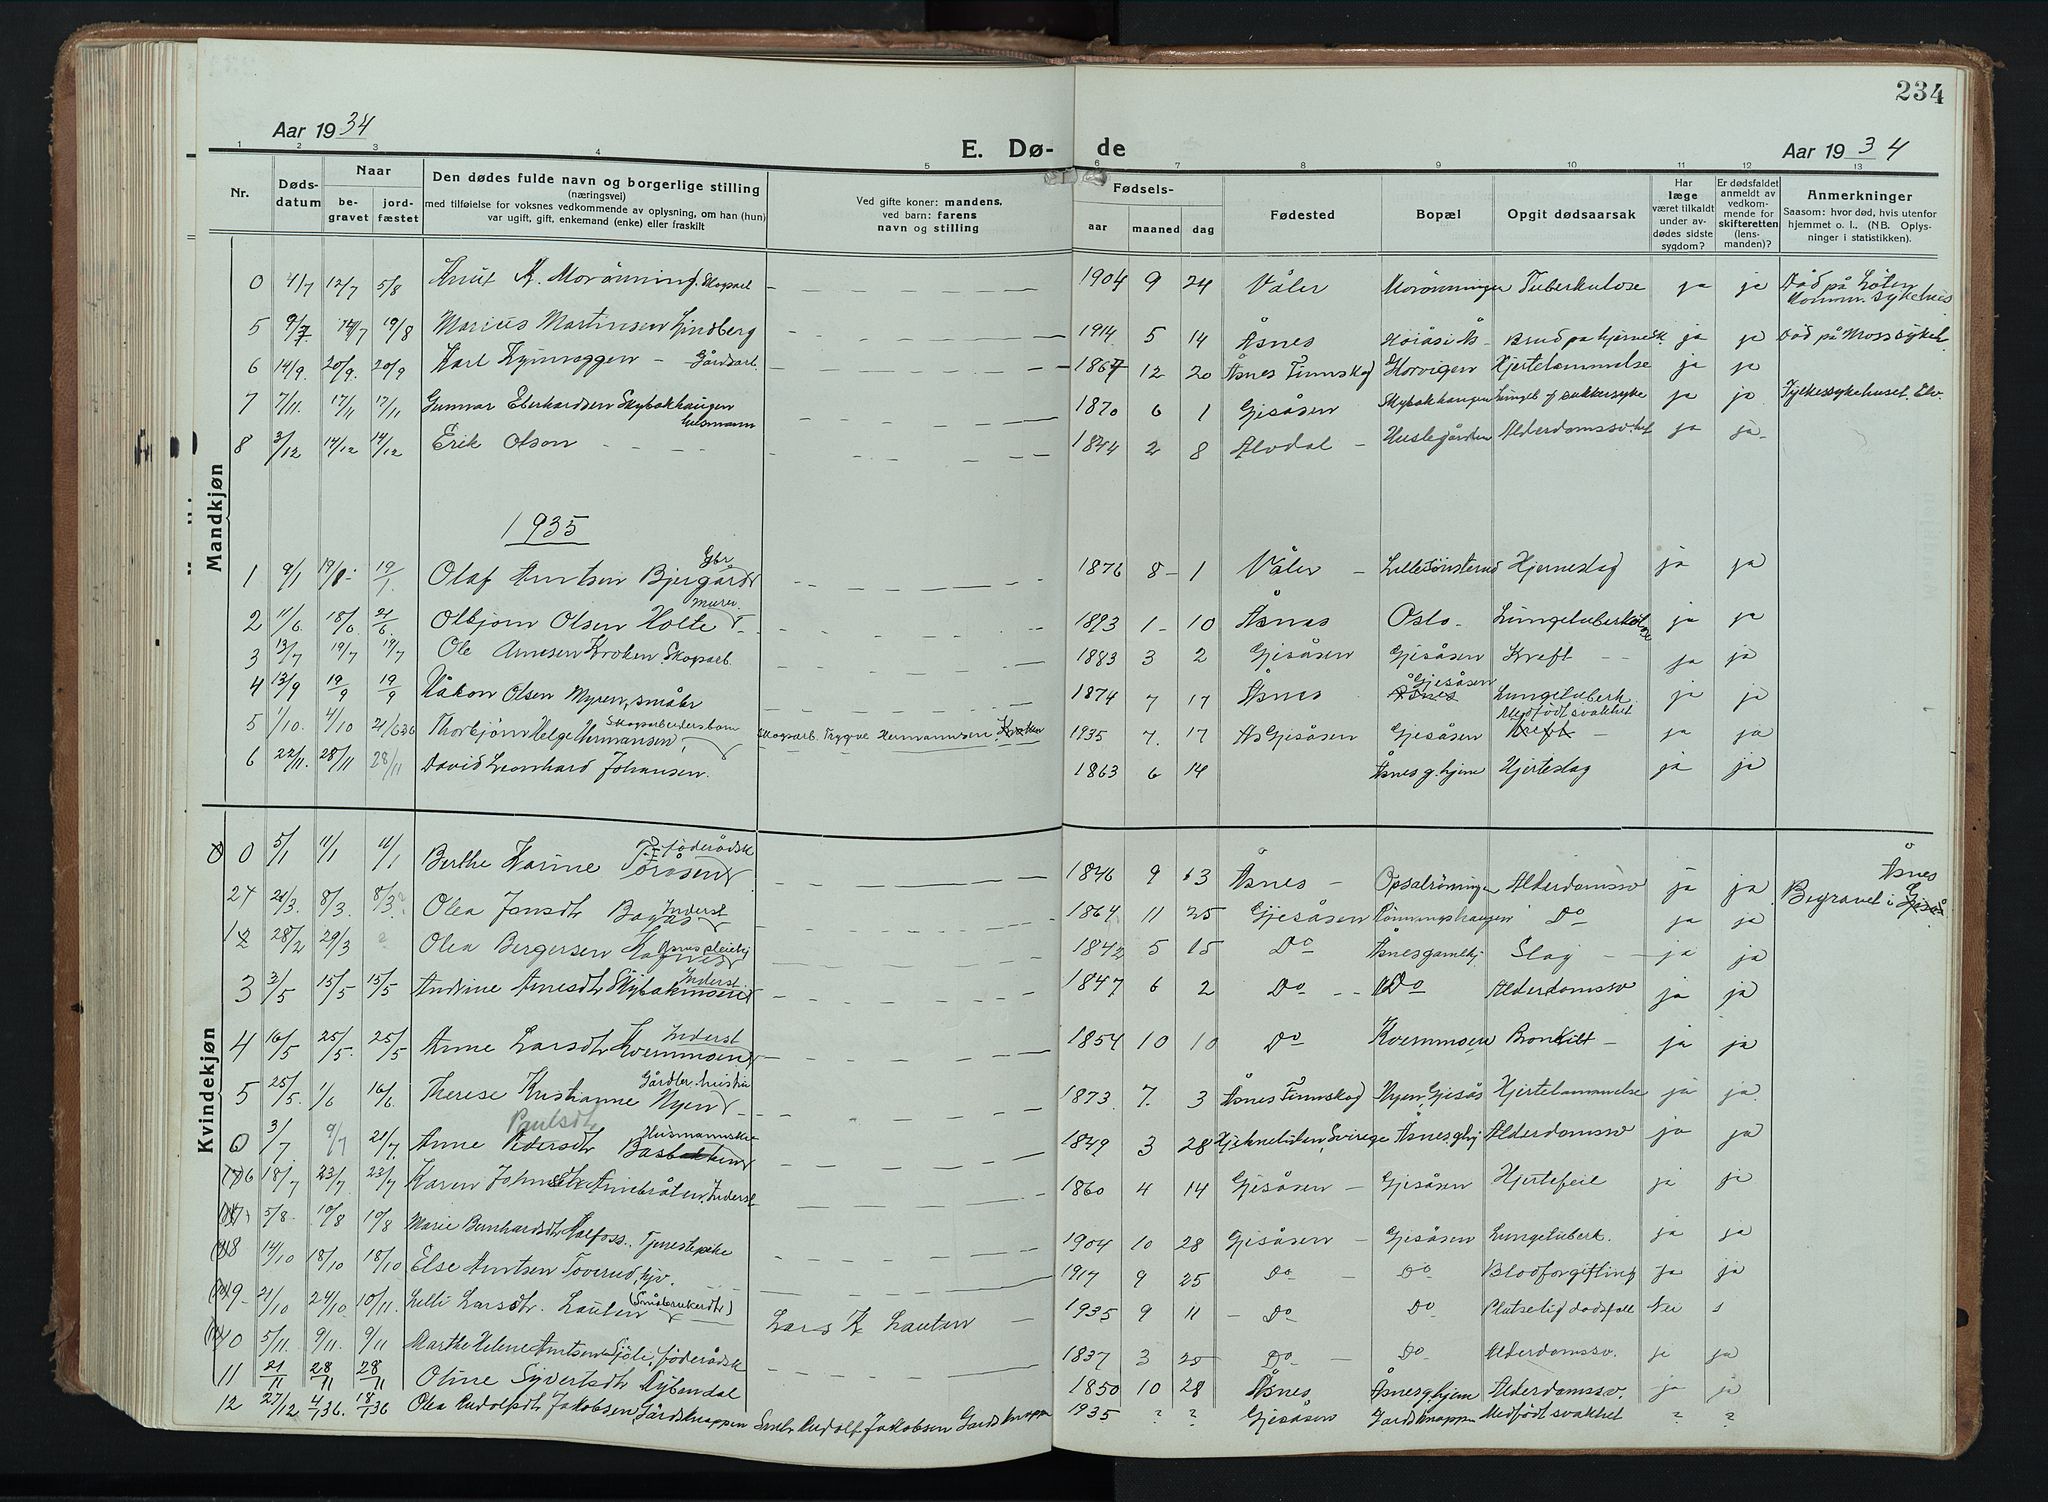 234
Aar 1934
E. Dø- de
Aar 1934
1 2 3 4 5 6 7 8 9 10 11 12 13
Nr.
Døds-
datum
Naar
be-
gravet
jord-
fæstet
Den dødes fulde navn og borgerlige stilling
(næringsvei)
med tilføielse for voksnes vedkommende av oplysning, om han (hun)
var ugift, gift, enkemand (enke) eller fraskilt
Ved gifte koner: mandens,
ved barn: farens
navn og stilling
Fødsels-
aar maaned dag
Fødested
Bopæl
Opgit dødsaarsak
Har
læge
været tilkaldt
under av-
dødes sidste
sygdom?
Er dødsfaldet
anmeldt av
vedkom-
mende for
skifteretten
(lens-
manden)?
Anmerkninger
Saasom: hvor død, hvis utenfor
hjemmet o. l.. (NB. Oplys-
ninger i statistikken).
Mandkjøn
0 4/7 12/7 5/8 Knut M. Morønning, Skogarb 1904 9 24 Våler Morønningen Tuberkulose ja ja Død på Løten Komm. Sykehus
5 9/7 14/7 19/8 Marius Martinsen Lindberg 1914 5 14 Åsnes ja ja Død på Moss sykeh.
6 14/9. 20/9. 20/9 Karl Gårdsarb. 1867 12 20 Åsnes Finnskog Horvigen Hjertelammelse ja ja
7 7/11. 17/11 17/11 Gunnar Eberhardsen Skybakhaugen 1870 6 1 Gjesåsen Skybakhaugen sukkersyke ja ja Fylkessykehuset. Elv.
8 3/12 14/12 14/12 Erik Olson 1844 2 8 Alvdal Alderdomssv.het ja ja
1935
1 9/1 19/1 Olaf Amtsen Bjergård Gbr. 1876 8 1 Våler Lillesønsterud Hjerneslag ja ja
2 11/6 18/6 21/6 Olbjørn Olsen Holte murer 1893 1 10 Åsnes Oslo Lungetuberkulose ja ja
3 13/7 19/7 19/7 Ole Arnesen Kroken. Skogarb. 1883 3 2 Gjesåsen Gjesåsen Kreft ja ja
4 13/9 19/9 19/9 Håkon Olsen Myren, småbr 1874 7 17 Åsnes Åsnes Gjesåsen Lungetuberk. ja ja
5 1/10. 4/10 21/6 36 Thorbjørn Helge Hermansen, Skogarbeidersbarn Skogsarb. Trygve Hermannsen Kroken 1935 7. 17 Gjesåsen Gjesåsen Kreft Medfødt svakhet ja ja
6 22/11. 28/11 28/11 David Leonhard Johansen. 1863 6 14 Åsnes g.hjem Hjerteslag ja ja
Kvindekjøn
0 5/1 11/1 11/1 Berthe Karine Toråsen føderådsk 1846 9 13 Åsnes Opsalrøningen Alderdomssv ja ja Begravet i Gjeså Åsnes
2 21/3. 8/3. 8/3? Olea Jonsdtr Inderst 1864 11 25 Gjesåsen Rønningshaugen Do ja ja
1 28/2 29/3 ? Olea Bergersen Åsnes pleiehj 1842 5 15 Do Åsnes gamlehj. Slag ja ja
3 3/5 15/5 15/5 Andrine Arnesdtr Skybakmoen Inderst 1847 6 2 Do Do Alderdomssv ja ja
4 16/5 25/5. 25/5 Anne Larsdtr Kvernmoen Inderst 1854 10 10 Do Kvernmoen Bronkitt ja ja
5 25/5. 1/6 16/6. Therese Kristianne Nyen 1873 7. 3 Åsnes Finnskog Nyen, Gjesås Hjertelammelse ja ja
Paulsdtr
6 3/7 9/7 21/7. Anne Pedersdtr Basbakken Husmannske 1849 3 28 Sverige Åsnes g.hj Alderdomssv ja ja
6 18/7 23/7 23/7 Karen Johnsdtr Annebråten, Inderst 1860 4 14 Gjesåsen Gjesåsen Hjertefeil ja ja
7 5/8. 10/8 10/8 Marie Bernhardsdtr Kalfoss. Tjenestepike 1904 10 28 Gjesåsen Gjesåsen Lungetuberk. ja ja
8 14/10 18/10 18/10 Else Amtsen Toverud, hjv. 1917 9 25 Do Do Blodforgiftning ja ja
9 21/10 24/10. 10/11. Lilli Larsdtr. Lauten (Småbrukerdtr) Lars K Lauten 1935 9 11 Do Do Plutselig dødsfall Nei
10 5/11 9/11. 9/11 Marthe Helene Amtsen Sjøli, føderådsk 1837 3 25 Do Do Alderdomssv. ja ja
11 21/11 28/11 28/11 Oline Syvertsdtr Nybendal 1850 10 28 Åsnes Åsnes g hjem Alderdomssv. ja ja
12 27/12 4/1 36. 18/1 36 Olea Rudolfsdtr Jakobsen Gårdsknappen Småbr Rudolf Jakobsen Gardsknappen 1935 ? ? Gjesåsen Gardsknappen Medfødt svakhet ? ?